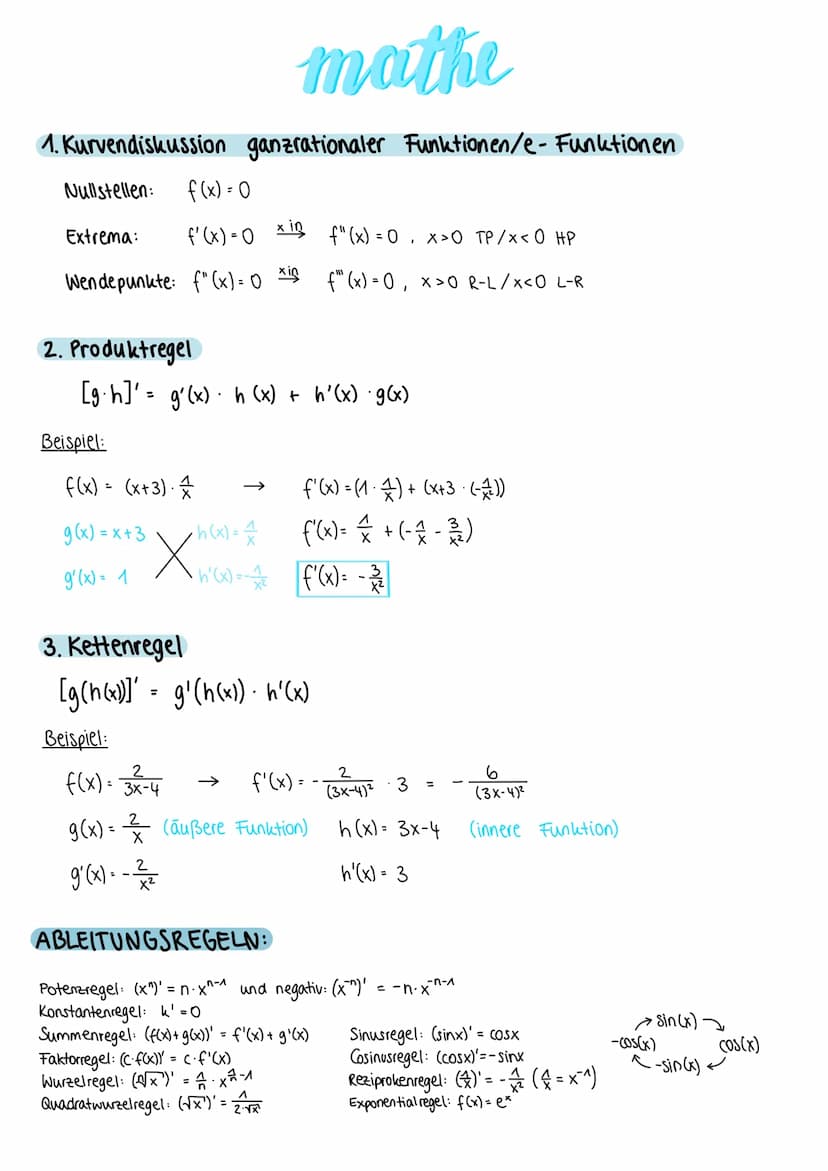 mathe
1. Kurvendiskussion ganzrationaler Funktionen/e-Funktionen
Nullstellen: f(x) = 0
Extrema: f'(x) = 0 x in ⟶ f"(x) = 0 , x>0 TP/x<0 HP
Wendepunkte: f"(x) = 0 x in ⟶ f'''(x) = 0 , x>0 R-L/x<0 L-R
2. Produktregel
[g·h]' = g'(x) · h(x) + h'(x) · g(x)
Beispiel:
f(x) = (x+3) · 1/x → f'(x) = (1 · 1/x) + (x+3 · (-1/x²))
g(x) = x+3 h(x) = 1/x f'(x) = 1/x + (-1/x - 3/x²)
g'(x) = 1 h'(x) = -1/x² f'(x) = -3/x²
3. Kettenregel
[g(h(x))]' = g'(h(x)) · h'(x)
Beispiel:
f(x) = 2/(3x-4) → f'(x) = -2/(3x-4)² · 3 = -6/(3x-4)²
g(x) = 2/x (äußere Funktion) h(x) = 3x-4 (innere Funktion)
g'(x) = -2/x² h'(x) = 3
ABLEITUNGSREGELN:
Potenzregel: (xⁿ)' = n·xⁿ⁻¹ und negativ: (x⁻ⁿ)' = -n·x⁻ⁿ⁻¹
Konstantenregel: k' = 0
Summenregel: (f(x)+g(x))' = f'(x) + g'(x)
Faktorregel: (c·f(x))' = c·f'(x)
Wurzelregel: (ⁿ√x)' = 1/n · x^(1/n-1)
Quadratwurzelregel: (√x)' = 1/(2·√x)
Sinusregel: (sinx)' = cosx
Cosinusregel: (cosx)' = -sinx
Reziprokenregel: (1/x)' = -1/x² (1/x = x⁻¹)
Exponentialregel: f(x) = eˣ
sin(x)
-cos(x) cos(x)
-sin(x)